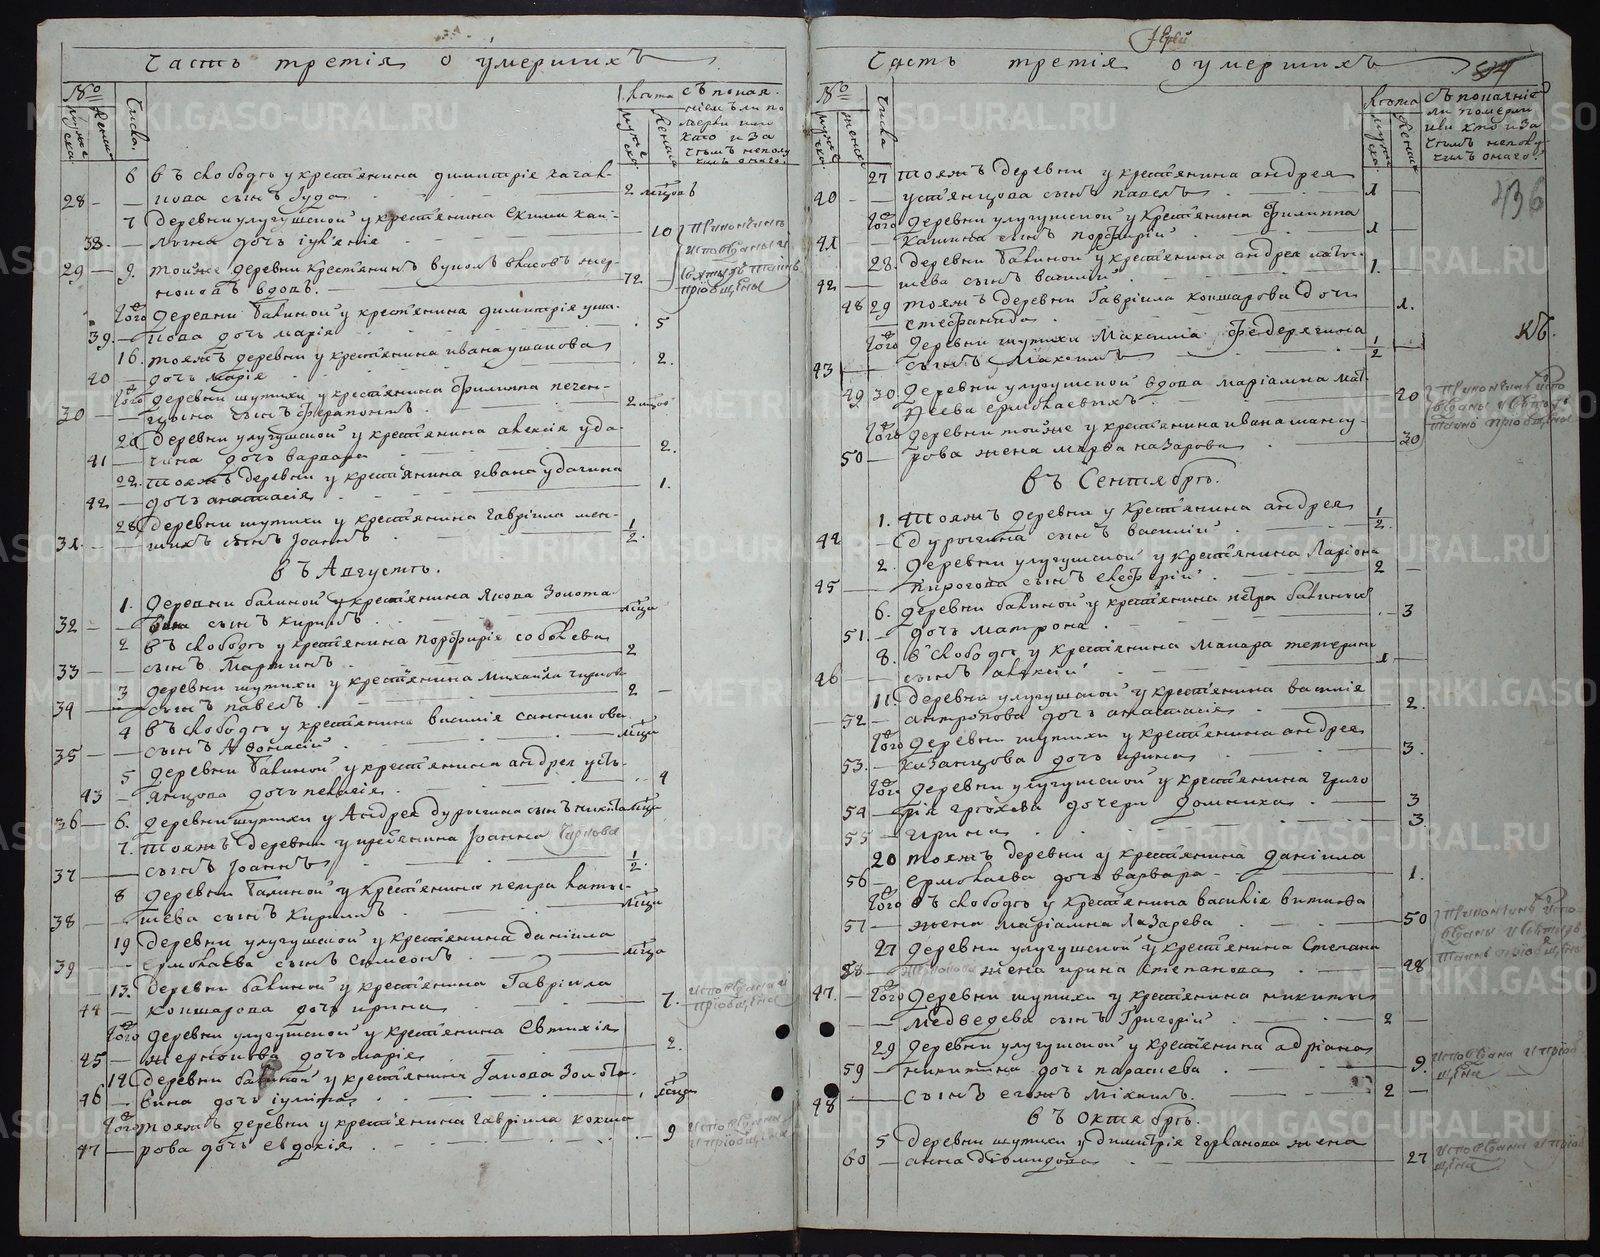 Часть третія о умершихъ
№
Мужеска.
Женска
Числа.
Лѣта
Мужеска
Женска
съ покая-
ніемъ ли по
мерли или
како и за
чѣмъ неполу
чилъ онаго.
6 въ слободѣ у крестьянина димитрія
28 — сынъ Іуда 2 мцовъ
7 Деревни улугушской у крестьянина
38 — дочь 10
29 — 9. тойже деревни крестьянинъ
вдовъ. 72
деревни балиной у крестьянина димитрія уша-
39. — кова дочь марія 5
16. тояжъ деревни у крестьянина ивана ушакова
40 — дочь марія 2.
тогож деревни шутихи у крестьянина филиппа печен-
30 — сынъ ферапонтъ 2 мцов
20 деревни улугушской у крестьянина алексія уда-
41 — чина дочь варвара 2.
22. тояжъ деревни у крестьянина ивана удачина
42 — дочь анастасія 1.
28 деревни шутихи у крестьянина гавріила мен-
31. — шихъ сынъ Іоаннъ 1/2.
въ Августѣ.
1. деревни балиной у крестьянина Якова Золота-
32 — вина сынъ кирилъ мца
2 въ слободѣ у крестьянина порфирія соболева
33 — сынъ Мартинъ 2
3 деревни шутихи у крестьянина михайла
34 — сынъ павелъ 2
4 въ слободѣ у крестьянина василія санникова
35 — сынъ Афонасій мца
5 деревни балиной у крестьянина андрея усть-
43 — янцова дочь пелагія 4
36 — 6. деревни шутихи у Андрея дурыгина сынъ никита мца
7. тояжъ деревни у крестьянина Іоанна
37 — сынъ Іоаннъ 1/2.
8 деревни балиной у крестьянина петра латы-
38 — шева сынъ Кирилъ мца
19 деревни улугушской у крестьянина даніила
39 — ермолаева сынъ симеонъ мца
13. деревни балиной у крестьянина Гавріила
44 — кокшарова дочь ирина 7. исповѣдана и
пріобщена
тогож деревни улугушской у крестьянина Евтихія
45 — дочь марія 2.
14 деревни балиной у крестьянина Іякова Золота-
46 — вина дочь іулита мца
тогож тояжъ деревни у крестьянина гавріила кокша
47 — рова дочь евдокія 9 исповѣдана
и пріобщена
Часть третія о умершихъ
№
Мужеска
Женска
Числа
Лѣта
Мужеска
Женска
съ покаяніе
ли померли
или кто и за
чѣмъ неполу-
чилъ онаго.
436
27 тояжъ деревни у крестьянина андрея
40 — устьянцова сынъ павелъ 1
тогож деревни улугушской у крестьянина Филиппа
41 — калинина сынъ порфирій 1
28. деревни балиной у крестьянина андрея латы-
42 — шева сынъ василій 1.
48 29 тояжъ деревни Гавріила кокшарова дочь
стефанида 1.
КЪ.
тогож деревни шутихи Максима Федерягина
43 — сынъ Максимъ 1/2
49 30. деревни улугушской вдова маріамна мат-
ѳеева ермолаевыхъ 20
тогож деревни тойже у крестьянина ивана
50 — рова жена марѳа назарова 30
въ Сентябрѣ.
1. тояжъ деревни у крестьянина андрея
44 — дурыгина сынъ василій 1/2.
2. деревни улугушской у крестьянина Ларіона
45 — пирогова сынъ елеферій 2
6. деревни балиной у крестьянина петра балиныхъ
51. — дочь матрона 3
8. въ слободѣ у крестьянина макара тетерина
46 — сынъ алексій 1
11. деревни улугушской у крестьянина василія
52 — антропова дочь анастасія 2.
тогож деревни шутихи у крестьянина андрея
53. — казанцова дочь ирина 3.
тогож деревни улугушской у крестьянина григо
54 — рія грѣхова дочери домника 3
55 — ирина 3.
20 тояжъ деревни у крестьянина даніила
56 — ермолаева дочь варвара 1.
тогож въ слободѣ у крестьянина василія
57 — жена маріамна Лазарева 50
27 деревни улугушской у крестьянина Степана
58 — жена ирина степанова 48
47. — тогож деревни шутихи у крестьянина никиты
медведева сынъ Григорій 2
29 деревни улугушской у крестьянина адріана
59 — никитина дочь парасцева 9. исповѣдана и пріоб
щена
48 — сынъ егожъ михаилъ. 2
въ Октябрѣ.
5 деревни шутихи у димитрія горланова жена
60 — анна діомидова 27 исповѣдана и пріоб
щена
METRIKI.GASO-URAL.RU